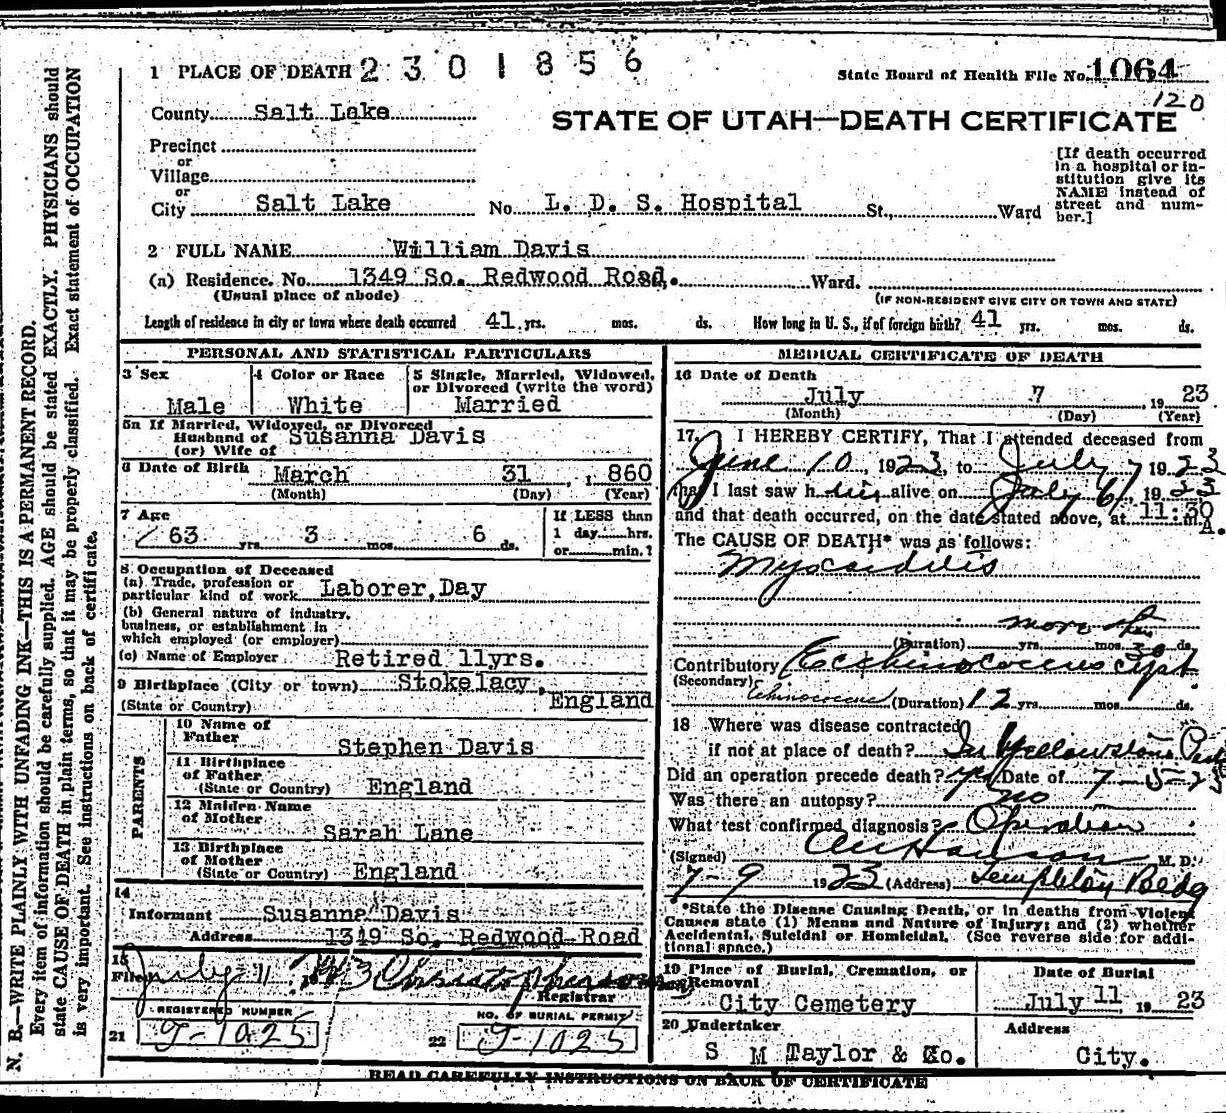 1 PLACE OF DEATH 2301856
State Board of Health File No. 1064
120
County Salt Lake
STATE OF UTAH—DEATH CERTIFICATE
Precinct
or
Village
or
City Salt Lake No. L. D. S. Hospital St., Ward
[If death occurred in a hospital or institution give its NAME instead of street and number.]
2 FULL NAME William Davis
(a) Residence. No. 1349 So. Redwood Road. Ward.
(Usual place of abode) (IF NON-RESIDENT GIVE CITY OR TOWN AND STATE)
Length of residence in city or town where death occurred 41 yrs. mos. ds. How long in U. S., if of foreign birth? 41 yrs. mos. ds.
PERSONAL AND STATISTICAL PARTICULARS
3 Sex Male
4 Color or Race White
5 Single, Married, Widowed, or Divorced (write the word) Married
5a If Married, Widowed, or Divorced
Husband of Susanna Davis
(or) Wife of
6 Date of Birth March 31, 1860
(Month) (Day) (Year)
7 Age 63 yrs. 3 mos. 6 ds.
If LESS than 1 day hrs. or min.?
8 Occupation of Deceased
(a) Trade, profession or particular kind of work Laborer, Day
(b) General nature of industry, business, or establishment in which employed (or employer)
(c) Name of Employer Retired 11yrs.
9 Birthplace (City or town) Stokelacy,
(State or Country) England
PARENTS
10 Name of Father Stephen Davis
11 Birthplace of Father (State or Country) England
12 Maiden Name of Mother Sarah Lane
13 Birthplace of Mother (State or Country) England
14
Informant Susanna Davis
Address 1349 So. Redwood Road
15
Filed July 11
Registrar
REGISTERED NUMBER
21 J-1025
NO. OF BURIAL PERMIT
22 J-1025
MEDICAL CERTIFICATE OF DEATH
16 Date of Death
July 7, 1923
(Month) (Day) (Year)
17. I HEREBY CERTIFY, That I attended deceased from
June 10, 1923, to July 7 1923
that I last saw him alive on July 6, 192
and that death occurred, on the date stated above, at 11:30 A. m.
The CAUSE OF DEATH* was as follows:
Myocarditis
more than
(Duration) yrs. mos. 30 ds.
Contributory Ecchinococcus Cyst
(Secondary) Echinococcus (Duration) 12 yrs. mos. ds.
18 Where was disease contracted
if not at place of death? In Yellowstone Park
Did an operation precede death? Yes Date of 7-5-23
Was there an autopsy? no
What test confirmed diagnosis? Operation
(Signed) M. D.
7-9 1923 (Address) Templeton Bldg
*State the Disease Causing Death, or in deaths from Violent Causes state (1) Means and Nature of Injury; and (2) whether Accidental, Suicidal or Homicidal. (See reverse side for additional space.)
19 Place of Burial, Cremation, or Removal
City Cemetery
Date of Burial
July 11, 1923
20 Undertaker
S M Taylor & Co.
Address
City.
READ CAREFULLY INSTRUCTIONS ON BACK OF CERTIFICATE
N. B.—WRITE PLAINLY WITH UNFADING INK—THIS IS A PERMANENT RECORD.
Every item of information should be carefully supplied. AGE should be stated EXACTLY. PHYSICIANS should
state CAUSE OF DEATH in plain terms, so that it may be properly classified. Exact statement of OCCUPATION
is very important. See instructions on back of certificate.